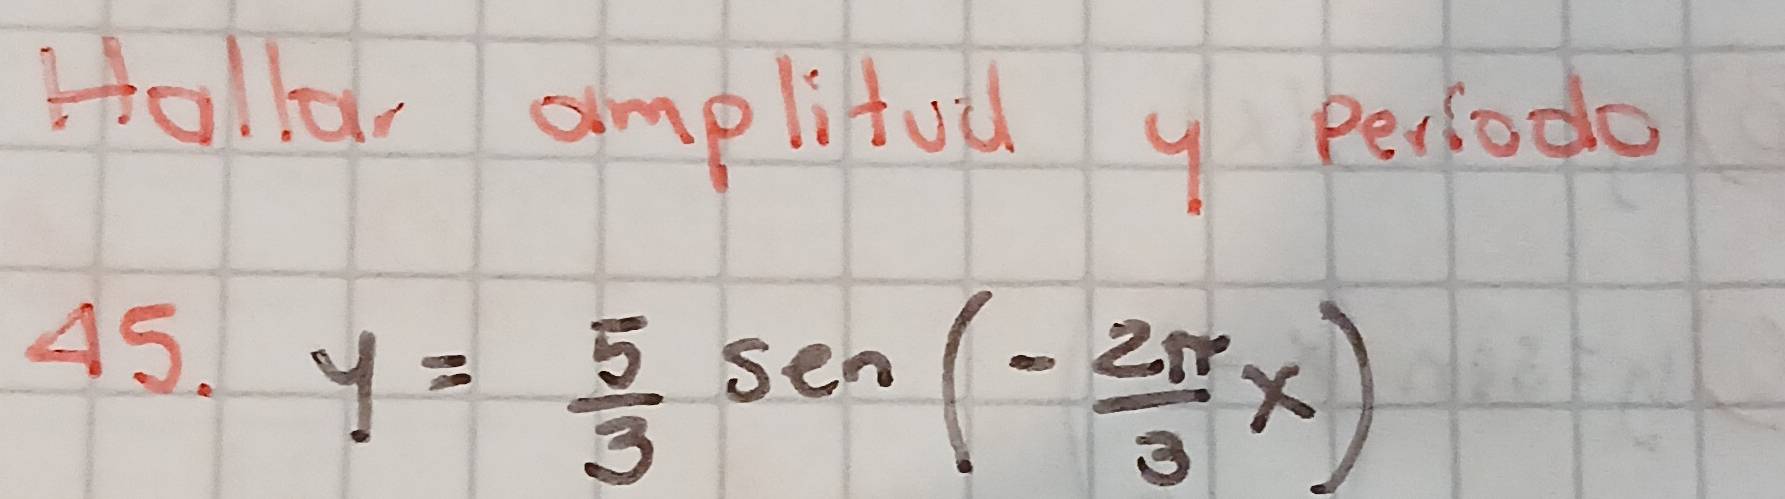 Hallar amplitud y Período
45. y = 5/3 sen (- 2π/3 x)